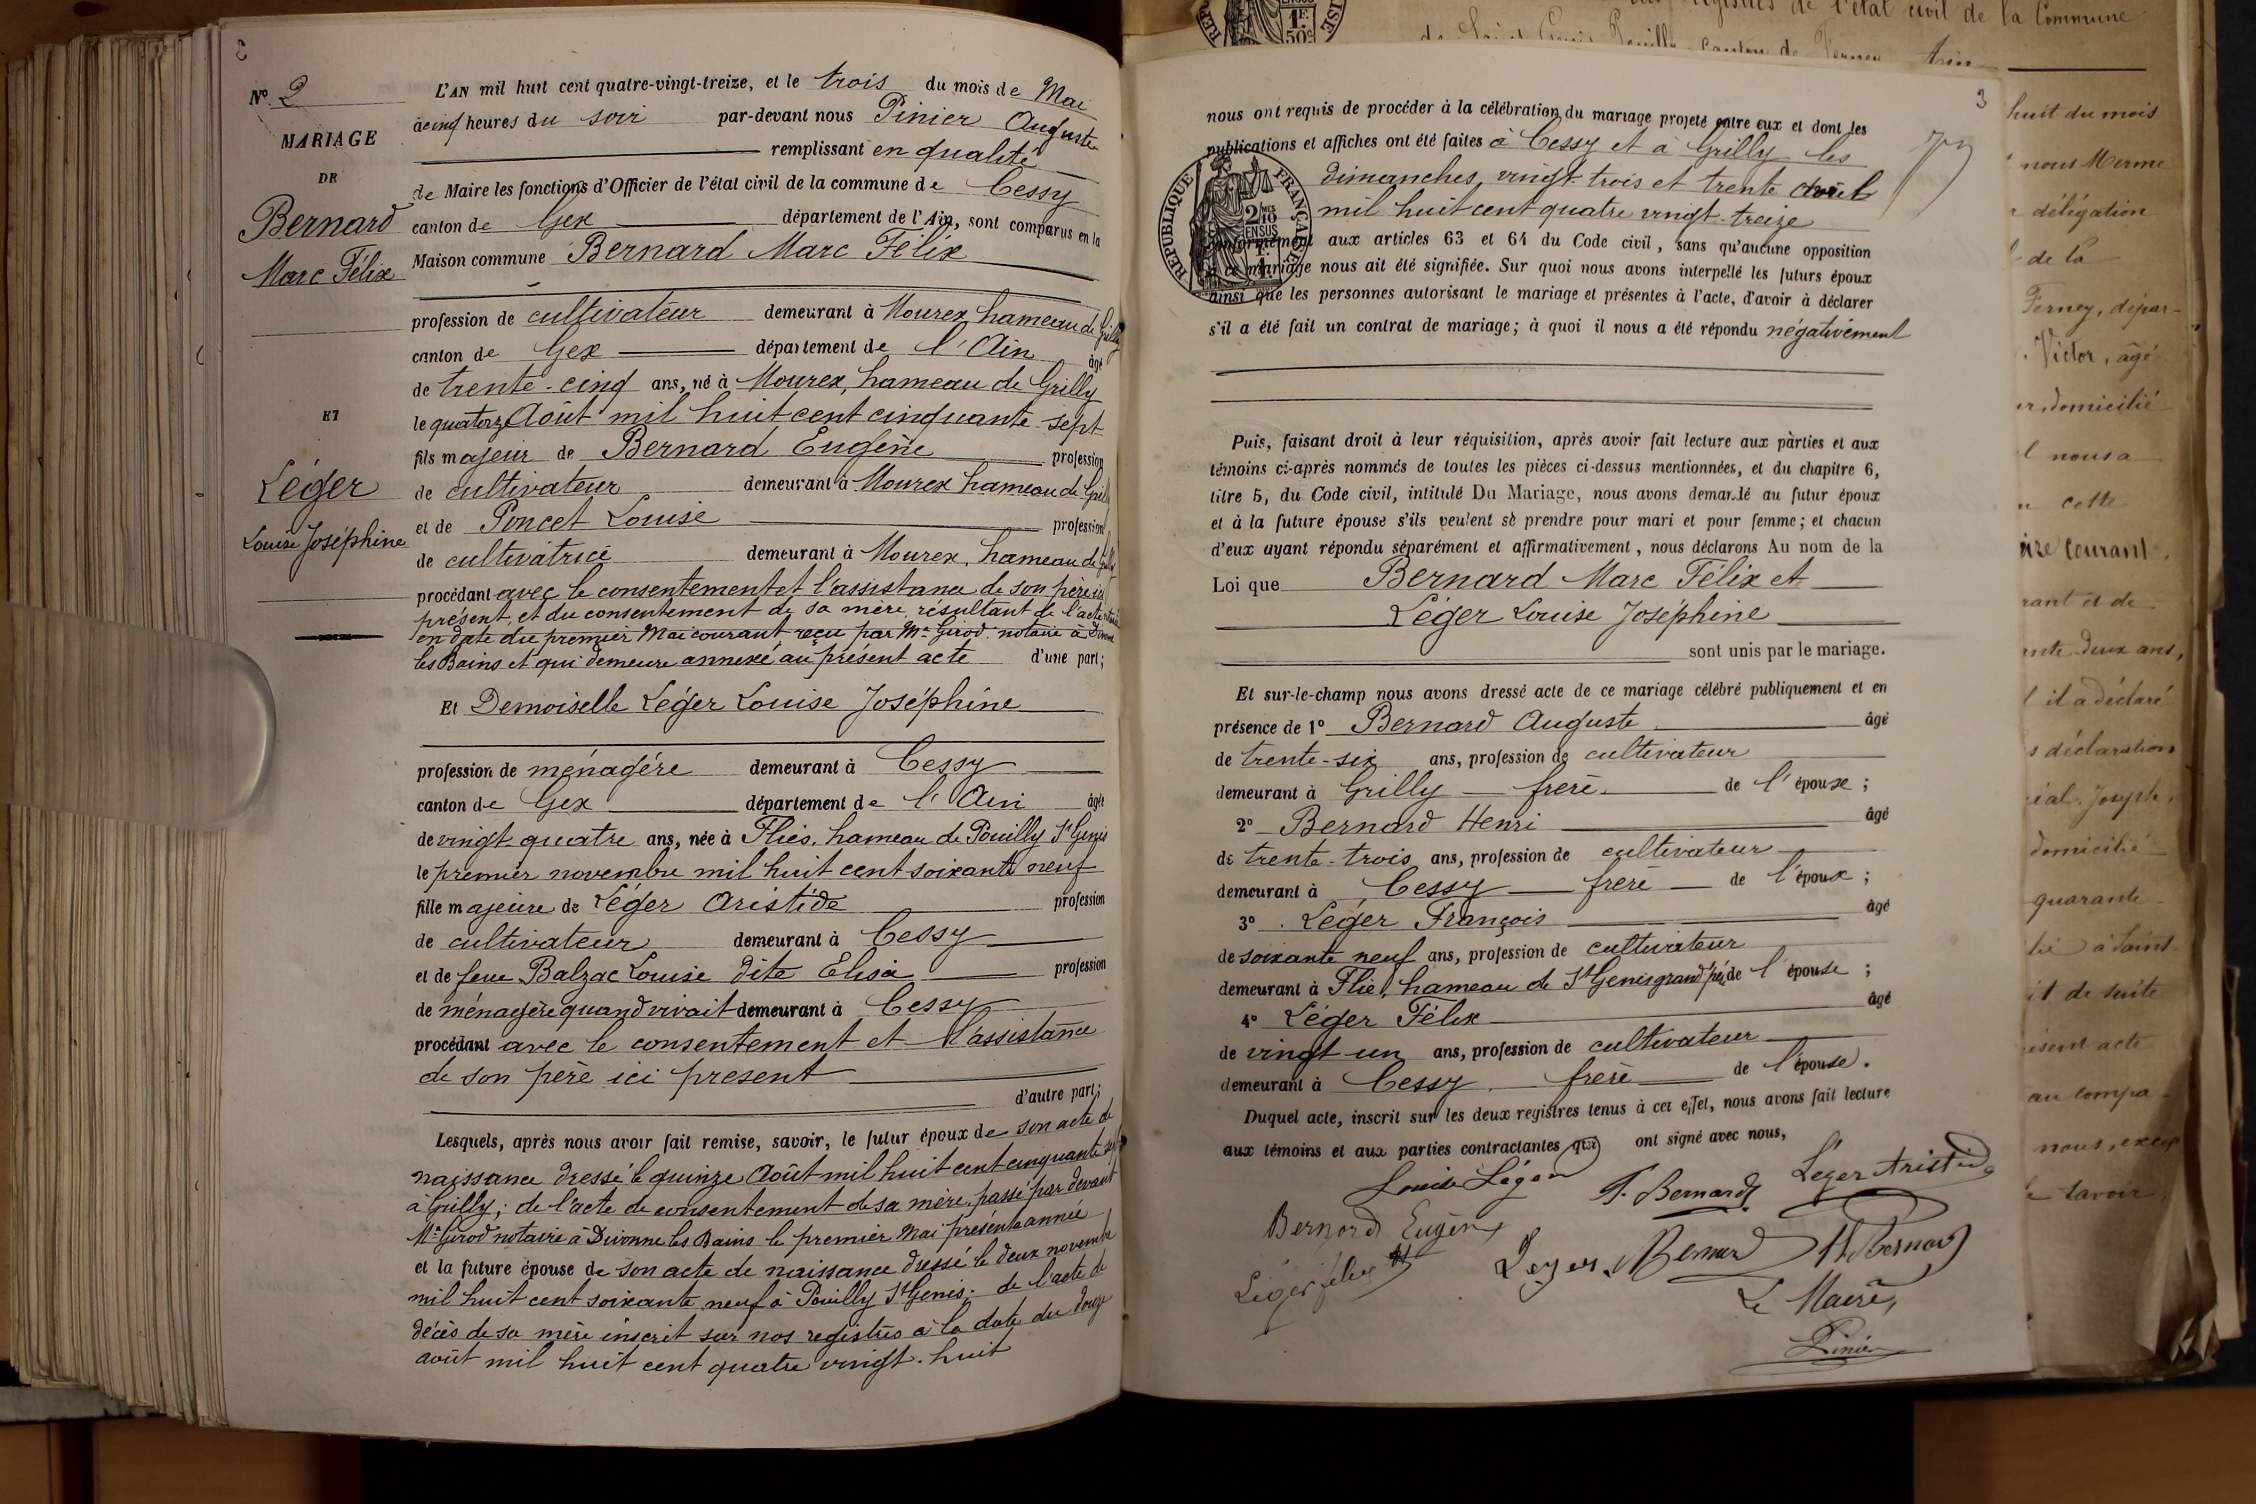 2
Nº 2
MARIAGE
DE
Bernard
Marc Félix
ET
Léger
Louise Joséphine
L'AN mil huit cent quatre-vingt-treize, et le trois du mois de Mai
à cinq heures du soir par-devant nous Pinier Auguste
remplissant en qualité
de Maire les fonctions d'Officier de l'état civil de la commune de Cessy
canton de Gex département de l'Ain, sont comparus en la
Maison commune Bernard Marc Félix
profession de cultivateur demeurant à Mourex hameau de Grilly
canton de Gex département de l'Ain âgé
de trente-cinq ans, né à Mourex, hameau de Grilly
le quatorze Août mil huit cent cinquante-sept
fils majeur de Bernard Eugène profession
de cultivateur demeurant à Mourex hameau de Grilly
et de Poncet Louise profession
de cultivatrice demeurant à Mourex, hameau de Grilly
procédant avec le consentement et l'assistance de son père ici
présent et du consentement de sa mère résultant de l'acte
en date du premier Mai courant reçu par Me Girod notaire à Divonne
les Bains et qui demeure annexé au présent acte d'une part;
Et Demoiselle Léger Louise Joséphine
profession de ménagère demeurant à Cessy
canton de Gex département de l'Ain âgée
de vingt-quatre ans, née à Flies, hameau de Pouilly St Genis
le premier novembre mil huit cent soixante neuf
fille majeure de Léger Aristide profession
de cultivateur demeurant à Cessy
et de feue Balzac Louise dite Elisa profession
de ménagère quand vivait demeurant à Cessy
procédant avec le consentement et l'assistance
de son père ici présent
d'autre part;
Lesquels, après nous avoir fait remise, savoir, le futur époux de son acte de
naissance dressé le quinze Août mil huit cent cinquante sept
à Grilly; de l'acte de consentement de sa mère passé par devant
Me Girod notaire à Divonne les Bains le premier Mai présente année
et la future épouse de son acte de naissance dressé le deux novembre
mil huit cent soixante neuf à Pouilly St Genis; de l'acte de
décès de sa mère inscrit sur nos registres à la date du douze
août mil huit cent quatre vingt-huit
3
nous ont requis de procéder à la célébration du mariage projeté entre eux et dont les
publications et affiches ont été faites à Cessy et à Grilly les
dimanches, vingt-trois et trente Avril
mil huit cent quatre vingt-treize
conformément aux articles 63 et 64 du Code civil, sans qu'aucune opposition
à ce mariage nous ait été signifiée. Sur quoi nous avons interpellé les futurs époux
ainsi que les personnes autorisant le mariage et présentes à l'acte, d'avoir à déclarer
s'il a été fait un contrat de mariage; à quoi il nous a été répondu négativement
RÉPUBLIQUE FRANÇAISE
2 MES
10
EN SUS
1F.
Puis, faisant droit à leur réquisition, après avoir fait lecture aux parties et aux
témoins ci-après nommés de toutes les pièces ci-dessus mentionnées, et du chapitre 6,
titre 5, du Code civil, intitulé Du Mariage, nous avons demandé au futur époux
et à la future épouse s'ils veulent se prendre pour mari et pour femme; et chacun
d'eux ayant répondu séparément et affirmativement, nous déclarons Au nom de la
Loi que Bernard Marc Félix et
Léger Louise Joséphine
sont unis par le mariage.
Et sur-le-champ nous avons dressé acte de ce mariage célébré publiquement et en
présence de 1º Bernard Auguste âgé
de trente-six ans, profession de cultivateur
demeurant à Grilly frère de l'épouse;
2º Bernard Henri âgé
de trente-trois ans, profession de cultivateur
demeurant à Cessy frère de l'époux;
3º Léger François âgé
de soixante neuf ans, profession de cultivateur
demeurant à Flie, hameau de St Genis grand père de l'épouse;
4º Léger Félix âgé
de vingt-un ans, profession de cultivateur
demeurant à Cessy frère de l'épouse.
Duquel acte, inscrit sur les deux registres tenus à cet effet, nous avons fait lecture
aux témoins et aux parties contractantes qui ont signé avec nous,
Louise Léger F. Bernard Léger Aristide
Bernard Eugène
Léger félix Leger Bernard H. Bernard
Le Maire,
Pinier
1F.
50c
registres de l'état civil de la Commune
huit du mois
nous Merme
délégation
de la
Ferney, dépar-
Victor, âgé
domicilié
nous a
cette
courant
rant et de
deux ans,
il a déclaré
déclaration
Joseph,
domicilié
quarante
à Saint
it de suite
acte
au compa-
nous, excep
savoir